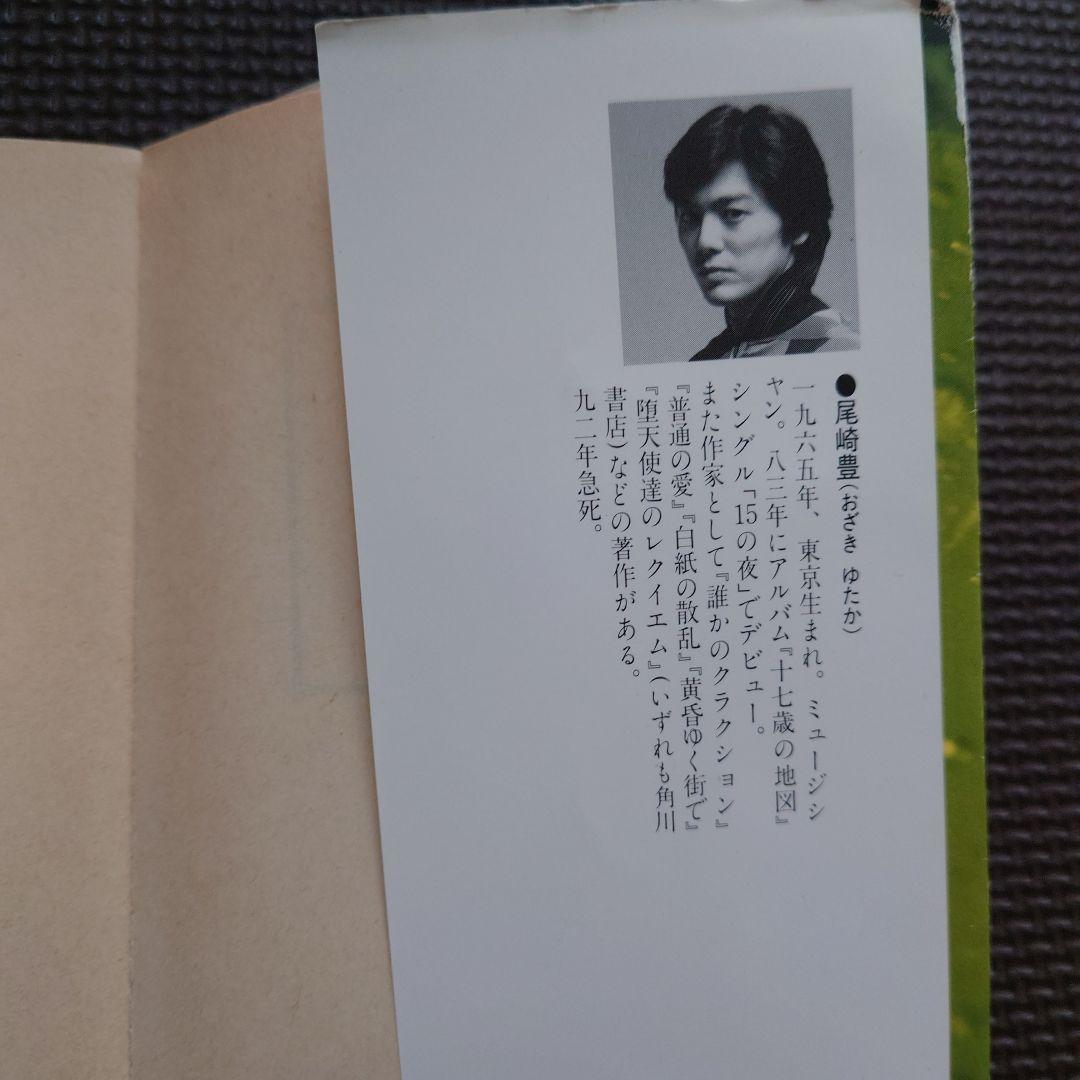 ●尾崎豊(おざき ゆたか)
一九六五年、東京生まれ。ミュージシ
ャン。八三年にアルバム『十七歳の地図』
シングル「15の夜」でデビュー。
また作家として『誰かのクラクション』
『普通の愛』『白紙の散乱』『黄昏ゆく街で』
『堕天使達のレクイエム』(いずれも角川
書店)などの著作がある。
九二年急死。